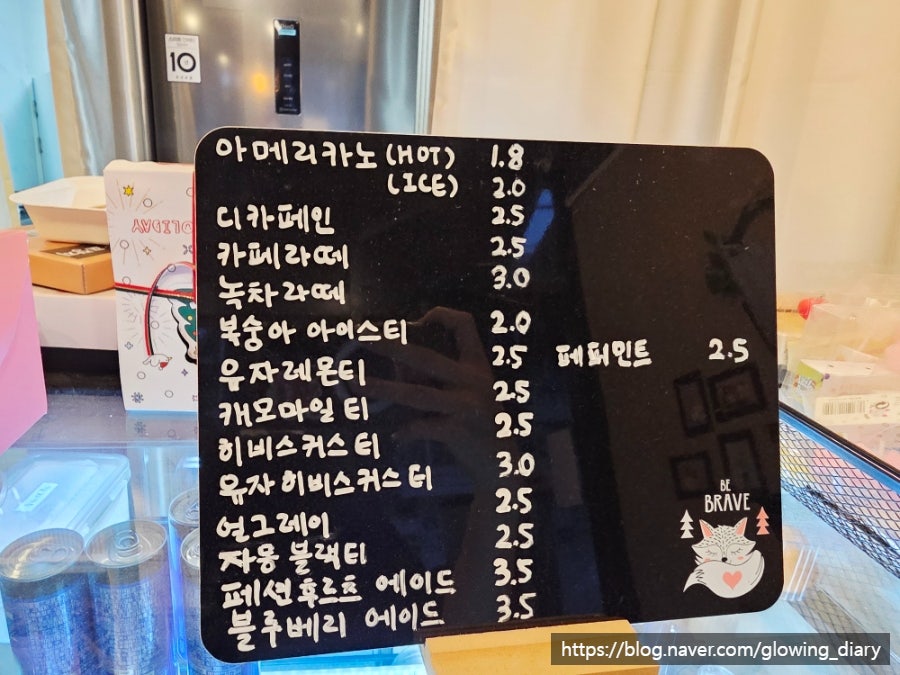 10
HOLIDAY
아메리카노 (HOT) 1.8
(ICE) 2.0
디카페인 2.5
카페라떼 2.5
녹차라떼 3.0
복숭아 아이스티 2.0
유자레몬티 2.5 페퍼민트 2.5
캐모마일 티 2.5
히비스커스 티 2.5
유자히비스커스티 3.0
얼그레이 2.5
자몽블랙티 2.5
페션후르츠 에이드 3.5
블루베리 에이드 3.5
BE
BRAVE
https://blog.naver.com/glowing_diary